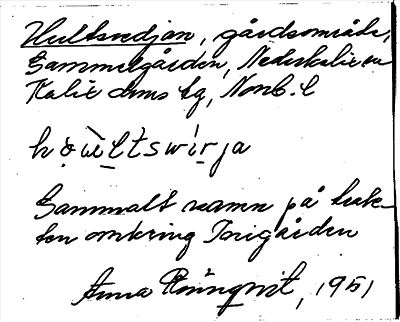 Hultsvedjan, gårdsområde,
Gammelgården, Nederkalix,
Kalix dms tg, Norrb. l
h o̤u̇l̲tswi̇r̲ja
Gammalt namn på trak-
ten omkring Torigården
Anna Rönnqvist, 1951